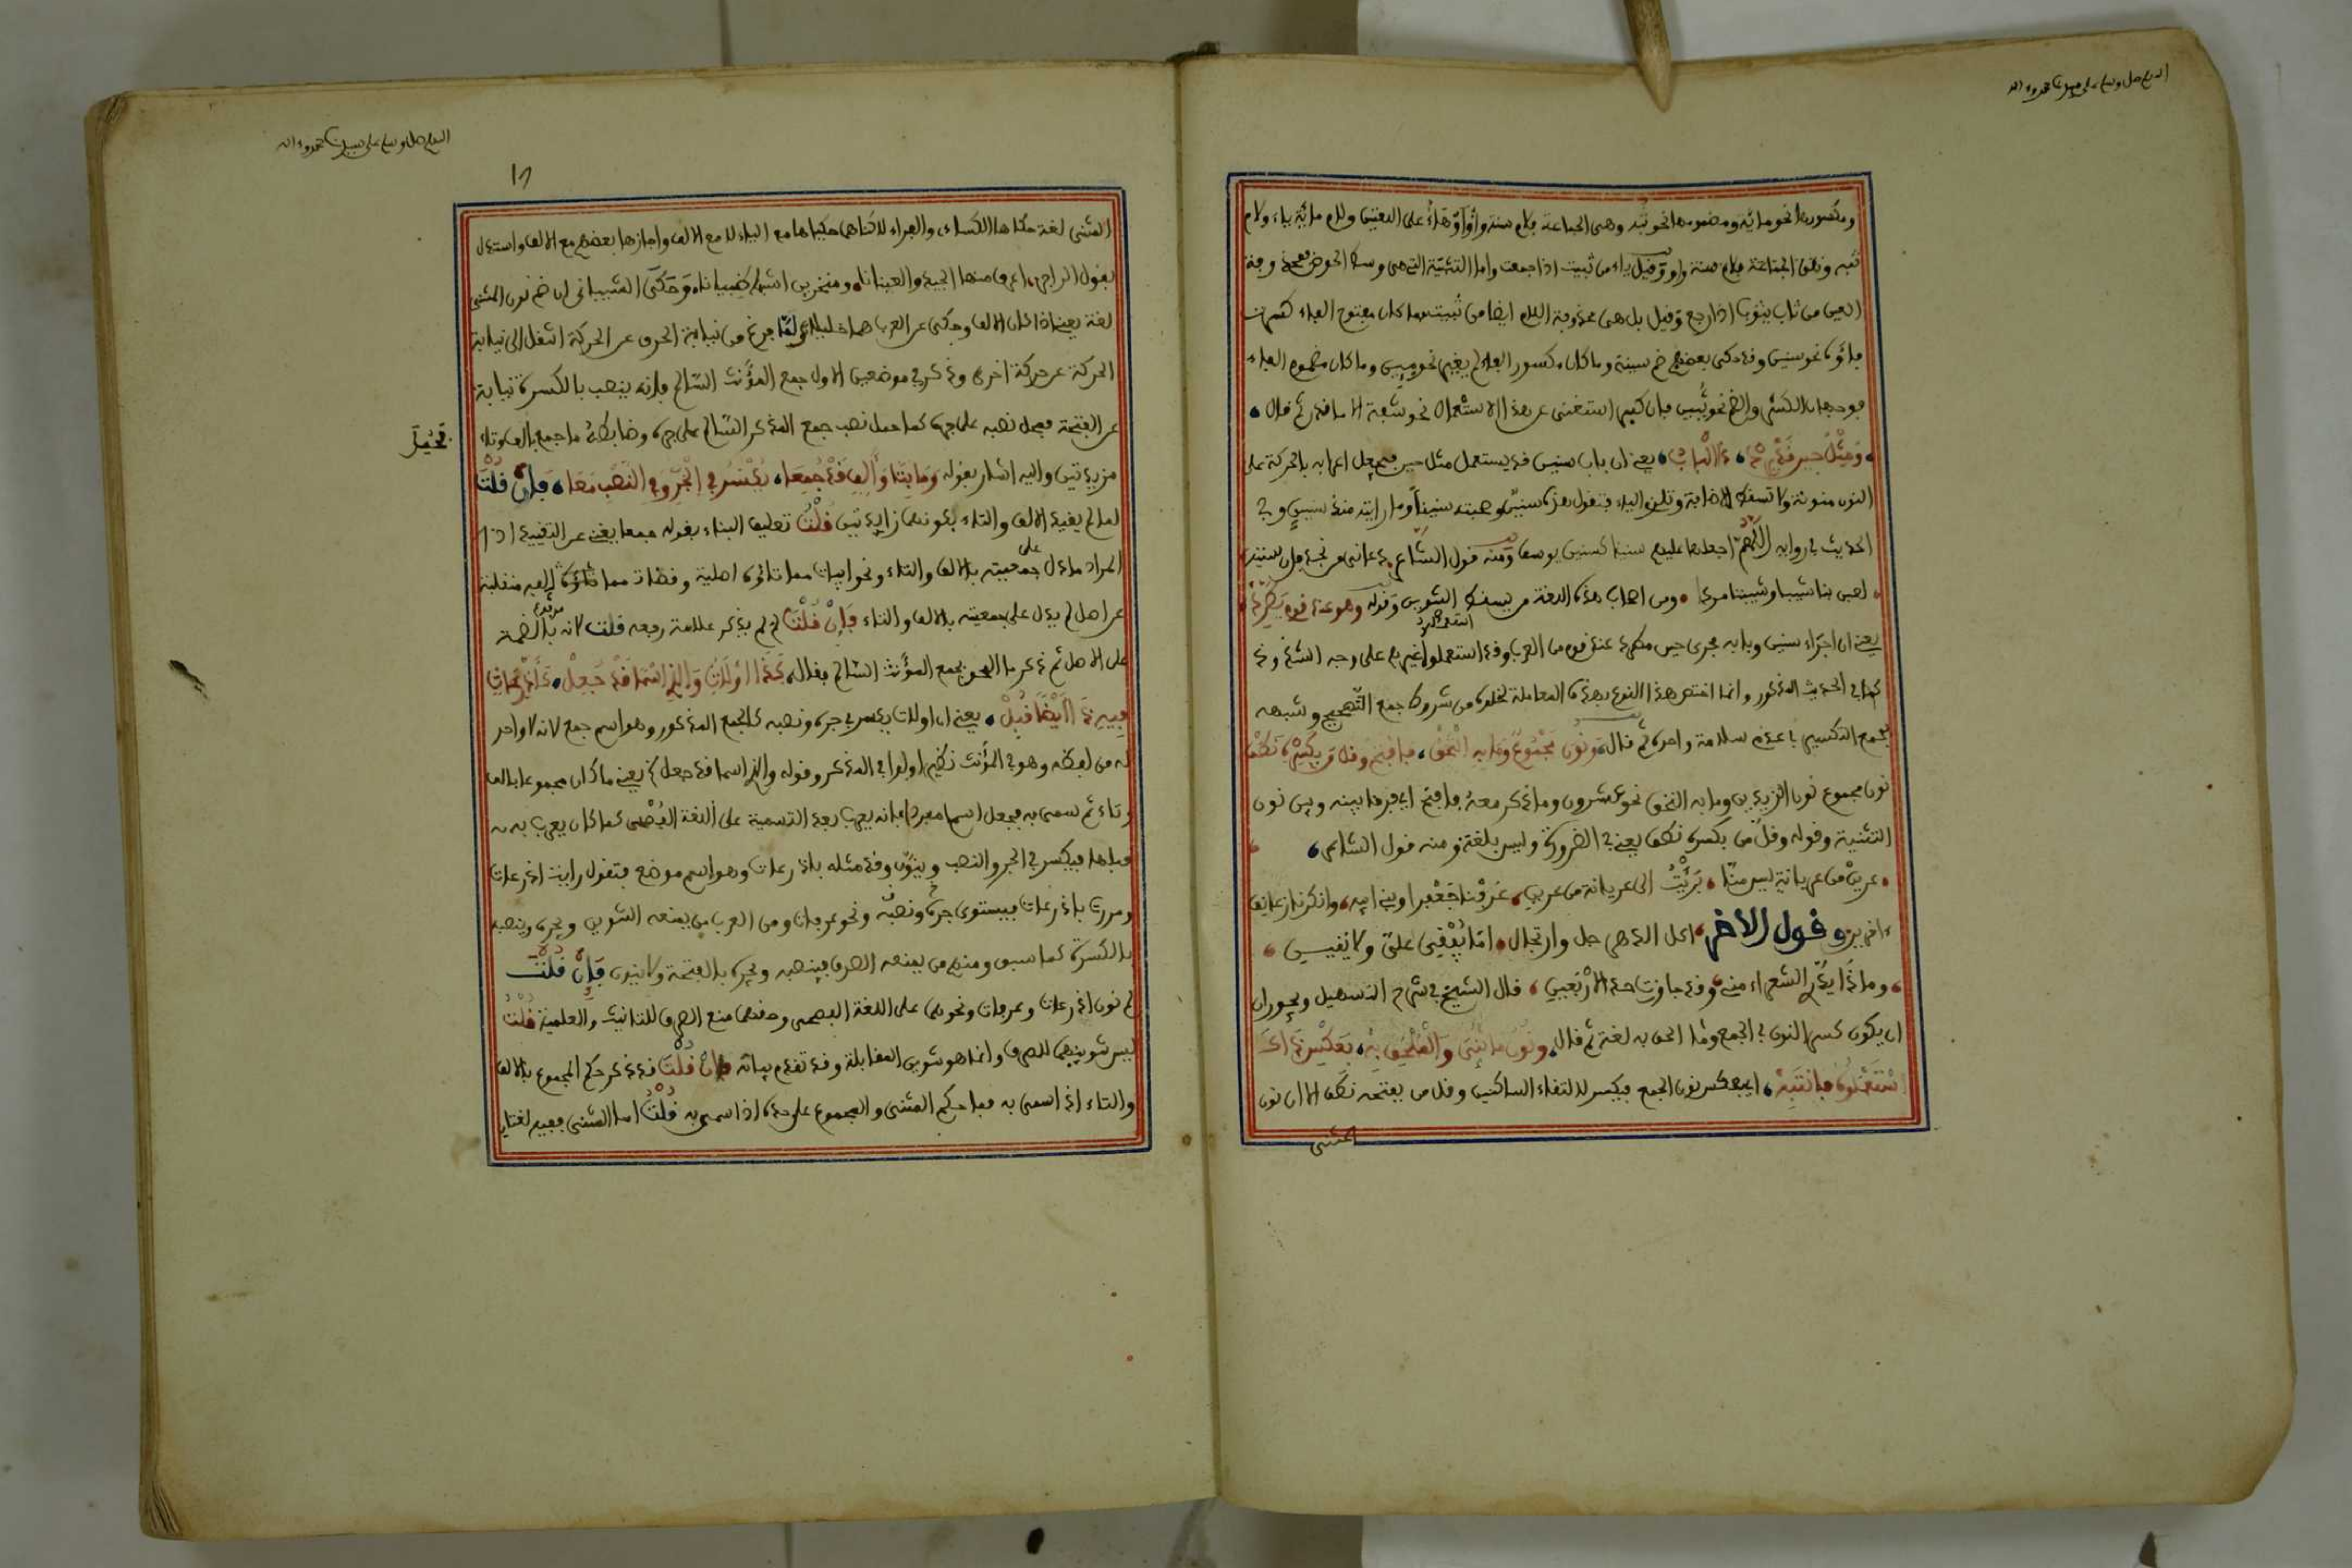 اللهم صل وسلم على سيدنا محمد وءاله
ومكسورها نحو مائة ومضمومها نحو ثبة وهى الجماعة فلام سنة واو أو هاء على اللغتين ولام مائة ياء ولام
ثبه وتكون الجماعة فلام سنة واو وفيل ياء من ثبيت اذا جمعت واما الثبة التى هى وسط الحوض
العين من ثاب يثوب اذا رجع وفيل بل هى محذوفة اللام ايضا من ثبيت وما كان مفتوح الفاء كسرت
فاؤه نحو سنين وفد حكى بعضهم ضم سينه وما كان مكسور الفاء لم يغير نحو ميين وما كان مضموم الفاء
فوجهان الكسر والضم نحو ثبين فان كسر استغنى عن هذا الاستعمال نحو شفة الا ما فدر ثم فال
ومثل حين فد يرد ذا الباب يعنى ان باب سنين فد يستعمل مثل حين فيجعل اعرابه بالحركة على
النون منونة ولا تسفط للاضافة وتلزم الياء فتفول هذه سنين وصحبته سنينا وما رايته منذ سنين وفى
الحديث فى رواية اللهم اجعلها عليهم سنينا كسنين يوسف ومنه فول الشاعر دعانى من نجد فان سنينه
لعبن بنا شيبا وشيبننا مردا ومن اصحاب هذه اللغة من يسفط التنوين وفوله وهو عند فوم يطرد
يعنى ان اجراء سنين وبابه مجرى حين مطرد عند فوم من العرب وفد استعملوا غيرهم على وجه الشذوذ
كما فى الحديث المذكور وانما اختص هذا النوع بهذه المعاملة لخلوه من شروط جمع التصحيح وشبهه
بجمع التكسير فى عدم سلامة واحده ثم فال ونون مجموع وما به التحق فافتح وفل من بكسره نطق
نون مجموع نون الزيدين وما به التحق نحو عشرون وما ذكر معه فافتح اى فرفا بينه وبين نون
التثنية وفوله وفل من بكسره نطق يعنى فى الضرورة وليس بلغة ومنه فول الشاعر
عرين من عرينة ليس منا برئت الى عرينة من عرين عرفنا جعفرا وبنى ابيه وانكرنا زعانف
ءاخرين وفول الاخر اكل الدهر حل وارتحال اما يبفى على ولا يفينى
وماذا يدرى الشعراء منى وفد جاوزت حد الاربعين فال الشيخ فى شرح التسهيل ويجوز
ان يكون كسر النون فى الجمع وما الحق به لغة ثم فال ونون ما ثنى والملحق به بعكس ذاك
استعملوه فانتبه اى بعكس نون الجمع فيكسر لالتفاء الساكنين وفل من يفتحه نطفا الا ان نون
المثنى
اللهم صل وسلم على سيدنا محمد وءاله
المثنى لغة حكاها الكساءى والفراء لاكنهما حكياها مع الياء لا مع الالف واجازها بعضهم مع الالف واستدل
بفول الراجز اعرف منها الجيد والعينانا ومنخرين اشبها ظبيانا وحكى الشيبانى ان ضم نون المثنى
لغة يعنى اذا كان بالالف وحكى عن العرب هما خليلان ولما فرغ من نيابة الحرف عن الحركة انتفل الى نيابة
الحركة عن حركة اخرى وذكر فى موضعين الاول جمع المؤنث السالم فانه ينصب بالكسرة نيابة
عن الفتحة فحمل نصبه على جره كما حمل نصب جمع المذكر السالم على جره وضابطه ما جمع بالف وتاء
مزيدتين واليه اشار بفوله وما بتا وألف فد جمعا يكسر فى الجر وفى النصب معا فإن فلت
لما لم يفيد الالف والتاء بكونهما زايدتين فلت تعليق الباء بفوله جمعا يغنى عن التفييد اذ
المراد ما دل على جمعيته بالالف والتاء ونحو ابيات مما تاؤه اصلية وفضاة مما الفه منفلبة
عن اصل لم يدل على جمعيته بالالف والتاء فإن فلت لم لم يذكر علامة رفعه فلت لانه بالضمة
على الاصل ثم ذكر ما الحق بجمع المؤنث السالم ففال كذا اولات والذى اسما فد جعل كأذرعات
فيه ذا أيضا فبل يعنى ان اولات يكسر فى جره ونصبه كالجمع المذكور وهو اسم جمع لانه لا واحد
له من لفظه وهو فى المؤنث نظير اولوا فى المذكر وفوله والذى اسما فد جعل يعنى ما كان مجموعا بالف
وتاء ثم سمى به فجعل اسما مفردا فانه يعرب بعد التسمية على اللغة الفصحى كما كان يعرب به
فبلها فيكسر فى الجر والنصب وينون وفد مثله باذرعات وهو اسم موضع فتفول رايت اذرعات
ومررت باذرعات فيستوى جره ونصبه ونحو عرفات ومن العرب من يمنعه التنوين ويجره وينصبه
بالكسرة كما سبق ومنهم من يمنعه الصرف فينصبه ويجره بالفتحة ولا ينون فإن فلت
لم نون اذرعات وعرفات ونحوهما على اللغة الفصحى وحفهما منع الصرف للتانيث والعلمية فلت
ليس تنوينهما للصرف وانما هو تنوين المفابلة وفد تفدم بيانه فإن فلت فد ذكر حكم المجموع بالالف
والتاء اذا سمى به فما حكم المثنى والمجموع على حده اذا سمى به فلت اما المثنى ففيه لغتان